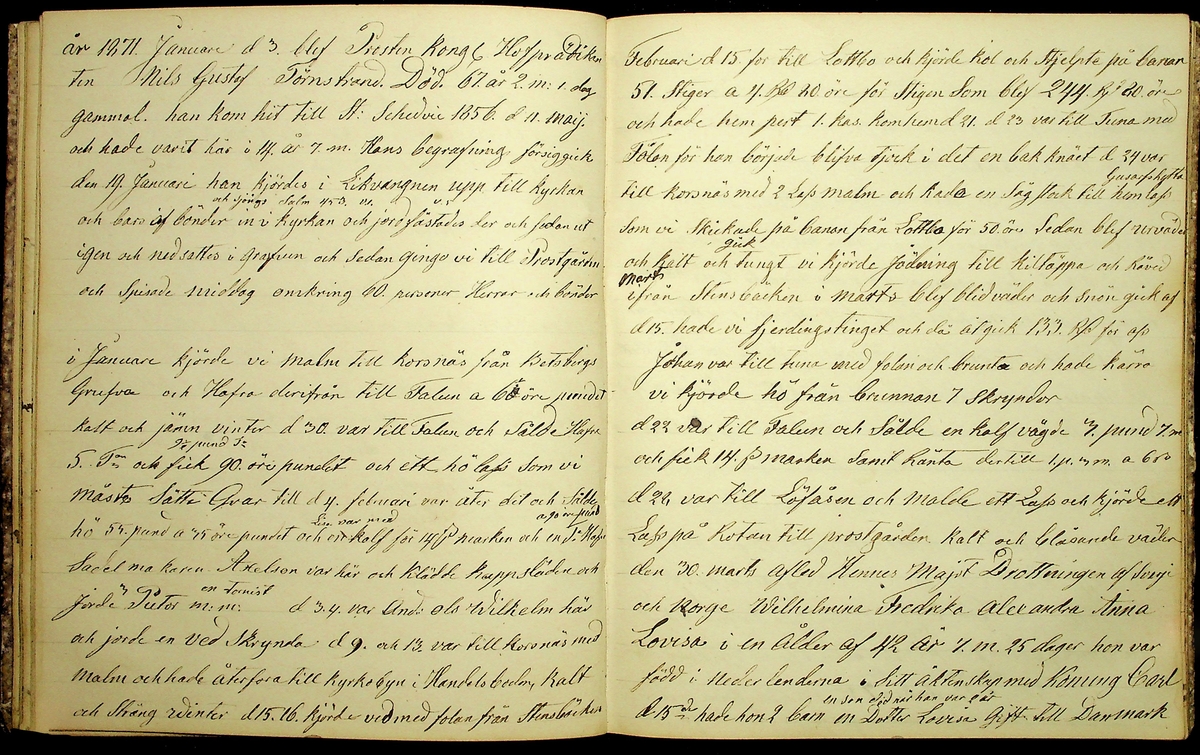 år 1871. Januari d 3. blef Prosten kongl Hofprädikan
ten Nils Gustof Törnstrand. Död. 67. år 2. m: 1. dag
gammal. han kom hit till St: Schedvie 1856. d 11. maij.
och hade varit här i 14. år 7. m. Hans begrafning försiggick
den 19. Januari han kjördes i Likvangnen upp till kyrkan
och sjöngs Salm 453. v1.
och bars af bönder in i kyrkan och jordfästades der och sedan ut
igen och nedsattes i Grafven och sedan gingo vi till Prostgården
och Spisade middag omkring 60. personer Herrar och bönder
i Januari kjörde vi malm till korsnäs från Betsbergs
Grufva och Hafra derifrån till Falun a 60 öre pundet
kalt och jämn vinter d 30. var till Falun och Sålde Hafra
5. Tnr och fick 90. öre pundet och ett hö lass som vi
måste Sätta Qvar till d 4. februari var åter dit och Sålde
a 90 öre pund
hö 55. pund a 45 öre pundet och en kalf för 14 marken och en Ta Hafra
Lisa var med
Sadelmakaren Axelson var här och klädde kappsläden och
en Tornist
jorde m: m: d 3.4. var And: ols Wilhelm här
och jorde en ved Skrynda d 9. och 13. var till korsnäs med
malm och hade återfora till kyrkobyn i Handelsbolm, kalt
och Sträng Winter d 15. 16. kjörde ved med folan från Stensbäcken
Februari d 15 for till Lottbo och kjörde kol och Hjelpte på banan
51. Stiger a 4. Rd 80 öre för Stigen Som blef 244. Rd 80. öre
och hade hem pert 1. kas. kom hem d 21. d 23 var till Tuna med
Folan för han började blifva tjock i det en bak knäet d 24 var
Gusafshytta
till korsnäs med 2 Lass malm och hade en Såg stock till hemlass
som vi Skickade på banan från Lottbo för 50. öre Sedan blef urväder
och kalt och tungt vi kjörde Jödning till kiltäppa och
gick
Marts
ifrån Stensbäcken i marts blef blidväder och snön gick af
d 15. hade vi fjerdingstinget och då åtgick 133. Rd för oss
Johan var till tuna med folan och brunta och hade kärra
vi kjörde hö från brunnan 7 Skryndor
d 22 var till Falun och Sålde en kalf vägde 3. pund 7. m
och fick 14. marken Samt hänta dertill 1. p. 3 m. a 6 rd
d 22 var till Löfåsen och malde ett Lass och kjörde ett
Lass på Rotan till prostgården kalt och blåsande väder
den 30. marts afled Hennes Majst Drottningen af Sverje
och Norge Wilhelmina Fredrika Alexandra Anna
Lovisa i en ålder af 42 år 7. m. 25 dagar hon var
född i Nederlenderna i sitt äktenskap med Konung Carl
en son död när han var 2 år
d 15de hade hon 2 barn en Dotter Lovisa Gift till Danmark